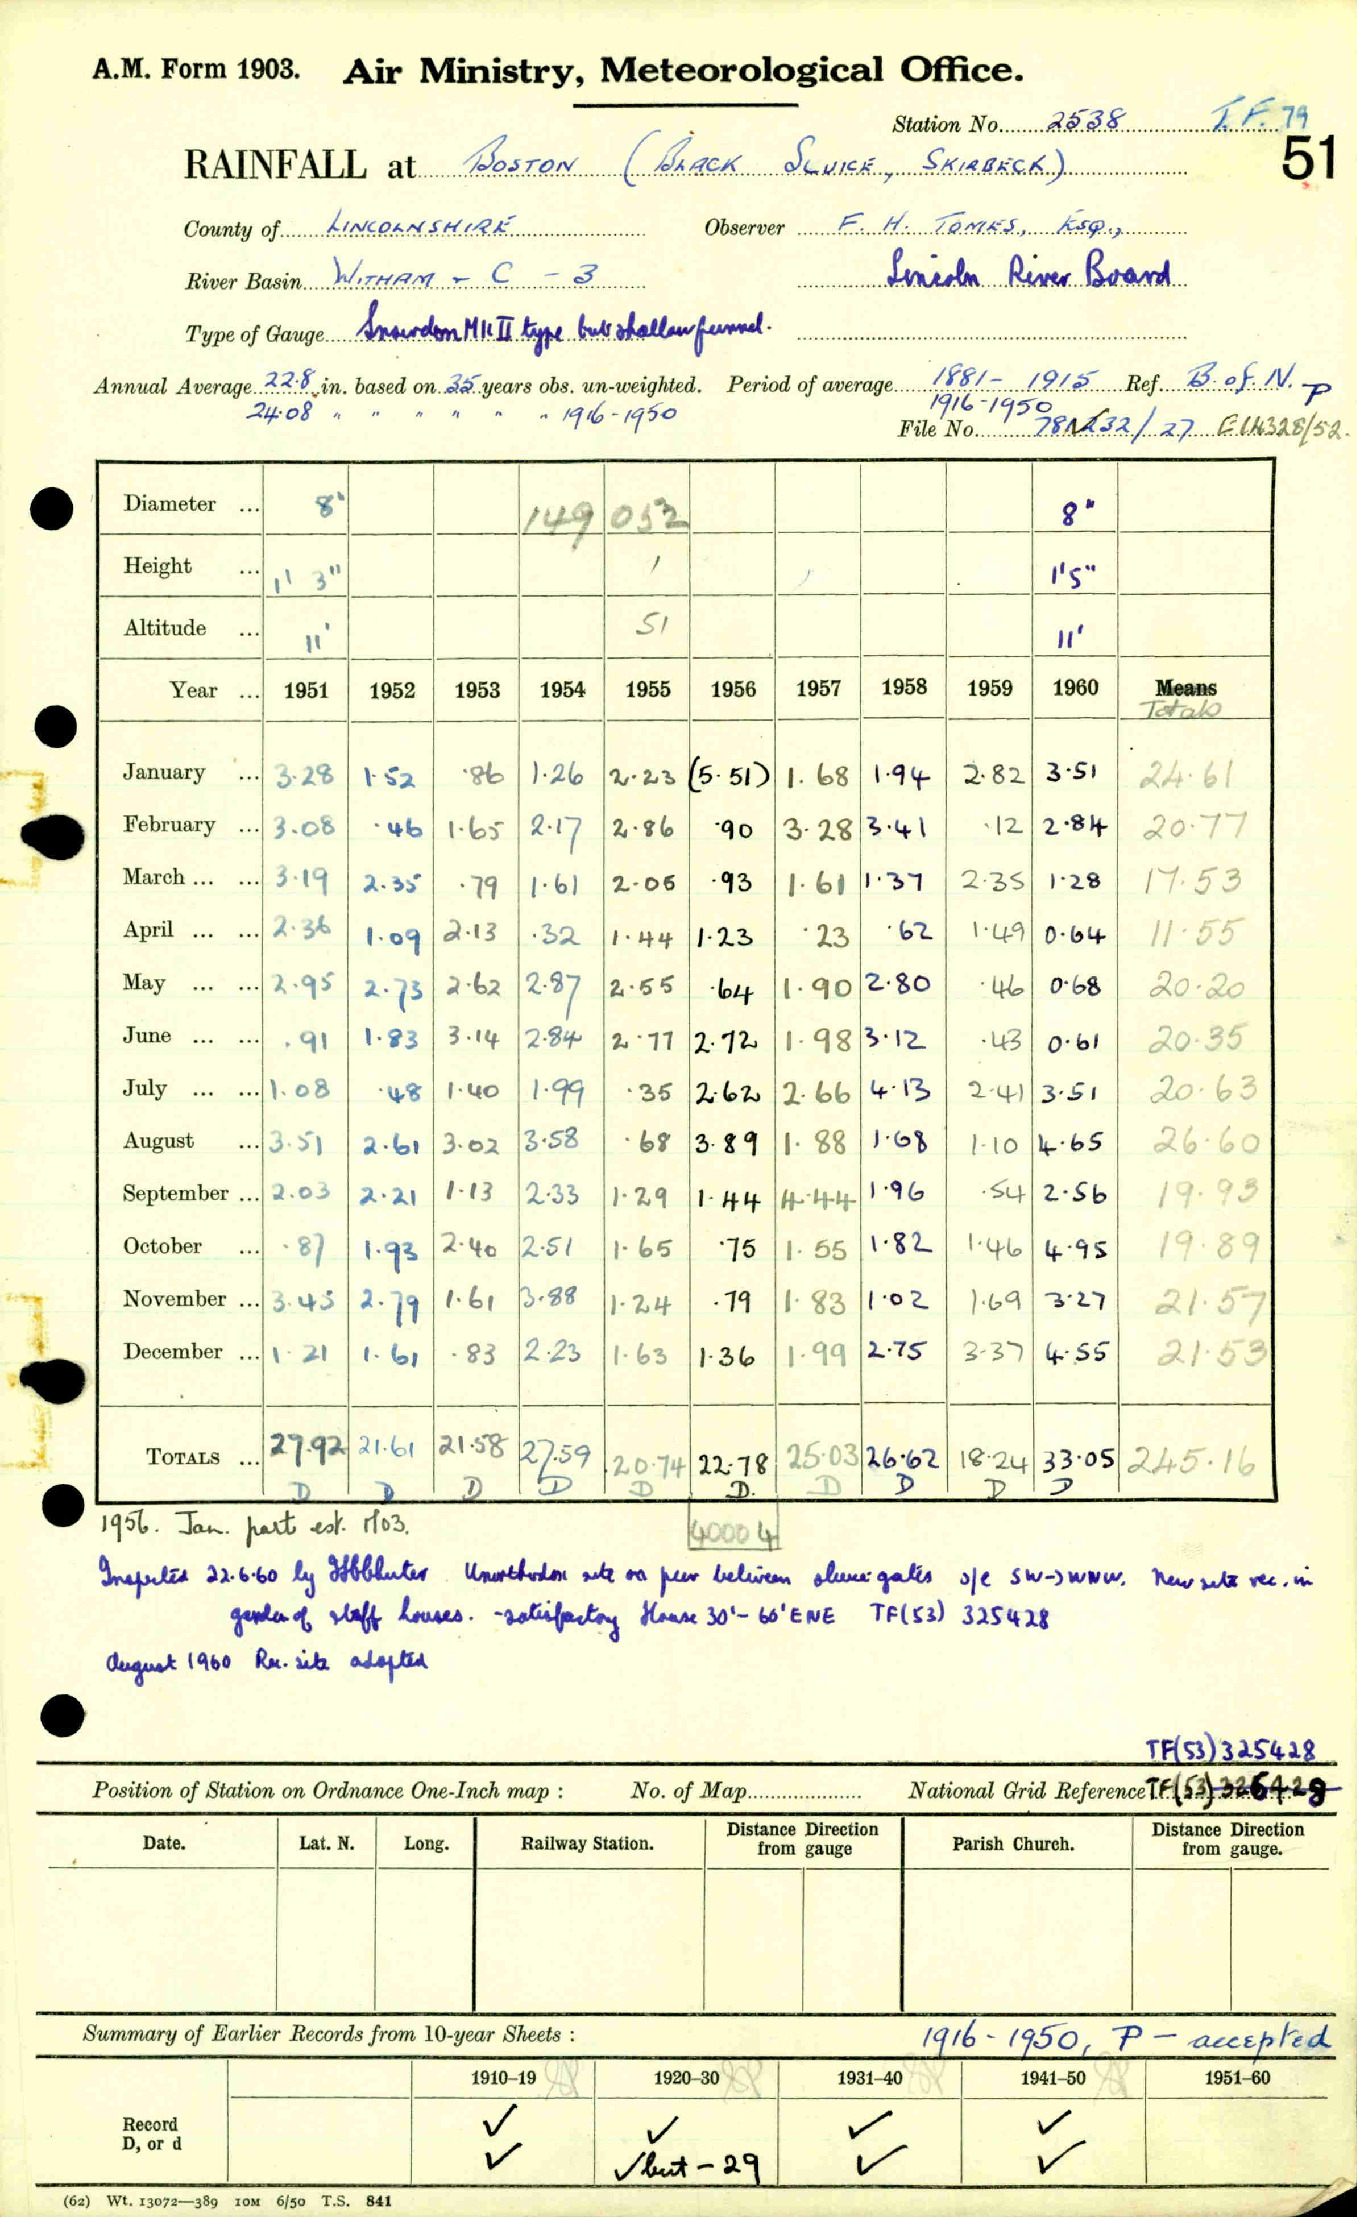 A.M. Form 1903. Air Ministry, Meteorological Office.
Station No. 2538 T.F. 79
51
RAINFALL at BOSTON (BLACK SLUICE, SKIRBECK)
County of LINCOLNSHIRE Observer F. H. TOMES, ESQ.,
River Basin WITHAM - C - 3 Lincoln River Board
Type of Gauge Snowdon Mk II type but shallow funnel.
Annual Average 22.8 in. based on 35 years obs. un-weighted. Period of average 1881 - 1915 Ref. B. of N. P
24.08 " " " " " " 1916-1950 1916-1950
File No. 781232/27 E14328/52.
Diameter ... 8" 149 052 8"
Height ... 1' 3" 1 1'5"
Altitude ... 11' 51 11'
Year ... 1951 1952 1953 1954 1955 1956 1957 1958 1959 1960 Means
Totals
January ... 3.28 1.52 .86 1.26 2.23 (5.51) 1.68 1.94 2.82 3.51 24.61
February ... 3.08 .46 1.65 2.17 2.86 .90 3.28 3.41 .12 2.84 20.77
March ... ... 3.19 2.35 .79 1.61 2.05 .93 1.61 1.37 2.35 1.28 17.53
April ... ... 2.36 1.09 2.13 .32 1.44 1.23 .23 .62 1.49 0.64 11.55
May ... ... 2.95 2.73 2.62 2.87 2.55 .64 1.90 2.80 .46 0.68 20.20
June ... ... .91 1.83 3.14 2.84 2.77 2.72 1.98 3.12 .43 0.61 20.35
July ... ... 1.08 .48 1.40 1.99 .35 2.62 2.66 4.13 2.41 3.51 20.63
August ... 3.51 2.61 3.02 3.58 .68 3.89 1.88 1.68 1.10 4.65 26.60
September ... 2.03 2.21 1.13 2.33 1.29 1.44 4.44 1.96 .54 2.56 19.93
October ... .87 1.93 2.40 2.51 1.65 .75 1.55 1.82 1.46 4.95 19.89
November ... 3.45 2.79 1.61 3.88 1.24 .79 1.83 1.02 1.69 3.27 21.57
December ... 1.21 1.61 .83 2.23 1.63 1.36 1.99 2.75 3.37 4.55 21.53
TOTALS ... 27.92 21.61 21.58 27.59 20.74 22.78 25.03 26.62 18.24 33.05 245.16
D D D D D D. D D D D
1956. Jan. part est. 1703. 40004
Inspected 22.6.60 by Unorthodox site on pier between sluice gates o/e SW->WNW. New site rec. in
garden of staff houses. - satisfactory House 30' - 60' ENE TF(53) 325428
August 1960 Rec. site adopted
TF(53)325428
Position of Station on Ordnance One-Inch map : No. of Map National Grid Reference TF(53)326428
Date. Lat. N. Long. Railway Station. Distance Direction from gauge Parish Church. Distance Direction from gauge.
Summary of Earlier Records from 10-year Sheets : 1916 - 1950, P - accepted
1910-19 1920-30 1931-40 1941-50 1951-60
Record ✓ ✓ ✓ ✓
D, or d ✓ ✓ but - 29 ✓ ✓
(62) Wt. 13072—389 10M 6/50 T.S. 841